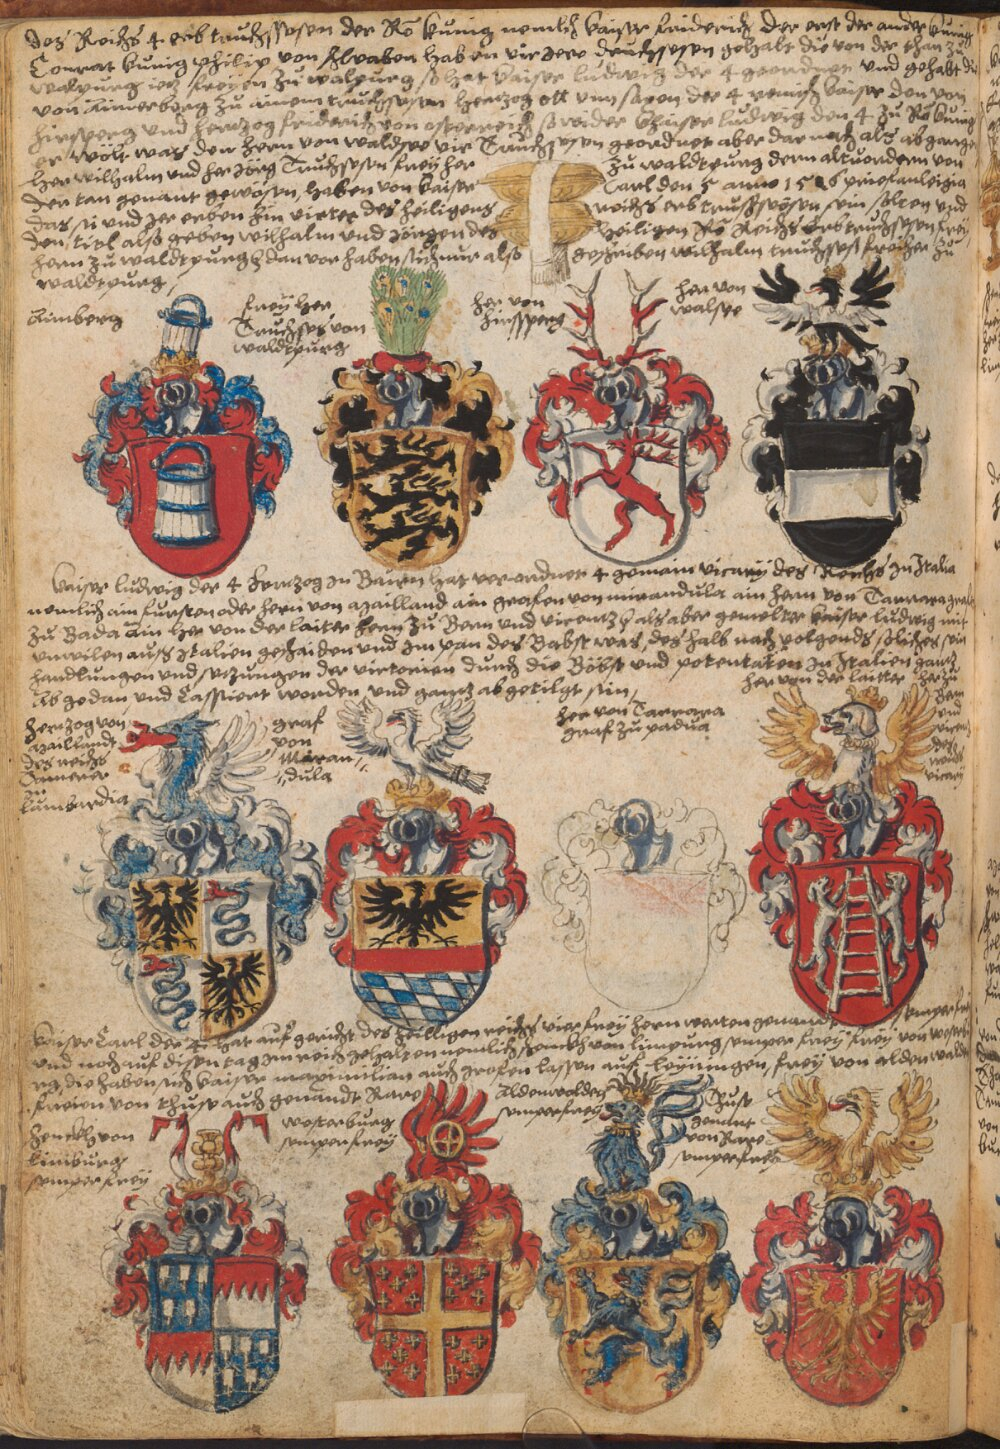 Des Reichs 4 erb truchsessen der Rö künig nemlich kaiser friderich der erst der ander künig
Conrat künig philip von schwaben haben vir jere druchsesen gehabt die von der than zu
walpurg jetz freyen zu walpurg so hat kaiser ludwig der 4 geordnet und gehabt die
von Aimerberg zu ainem truchsessen hertzog ott von saxen der 4 römisch kaiser den von
hirsperg und hertzog friderich von osterreich so wider khaiser ludwig den 4 zu Rö künig
er wölt was den hern von waldsee vir Truchsesen geordnet aber darnach als abgangen
her wilhalm und her Jörg Truchsesen freyher
zu waldtpurg deren altvordern von
der tan genant gewesen, haben von kaiser
Carl den 5 anno 15 6
das si und jer erben hin virter des heiligen
reichs erb truchsessen sein sollen und
den titl also geben wilhalm und Jörgen des
heiligen Rö Reichs Erbtruchsesen frey
hern zu waldtpurg dan vor haben sich nur also
geschriben wilhalm truchsess freyher zu
waldtpurg,
Aimberg
freyher
Truchses von
waldtpurg
her von
hirsperg
her von
walsee
kaiser ludwig der 4 hertzog in Bairn hat verordnet 4 gemain vicary des Reichs in Italia
nemlich ain fursten oder hern von Mailland ain grafen von mirandula ain hern von Carrara graf
zu Bada ain her von der laiter hern zu Bern und vicentz als aber gemelter kaiser ludwig mit
unwilen auss Italien geschaiden und im pan des Babst was, deshalb nach volgends solches sein
handlungen und setzungen der vicarien durch die Böbst und potentaten in Italien gantz
abgedan und Cassiert worden und gantz abgetilgt sein,
hertzog von
Mailland
des reichs
Camerer
zu
Lumbardia
graf
von
Miran
dula
her von Carrara
graf zu padua
her von der laiter
her zu
Bern
und
vicentz
des
reichs
vicary
kaiser Carl der 4 hat auf gericht des heilligen reichs vier frey hern werden genandt semper frey
und noch auf disen tag im reich gehalten nemlich schenkh von limpurg semper frey frey von westerbu
rg, die haben sich kaiser maximilian auch grefen lassen auf leyningen, frey von aldenwalden
freien von thusis auch genandt Rare
schenckh von
limburg
semper frey
westerburg
semper frey
Aldenwalden
semper frey
Thusis
genant
von Rare
semper frey